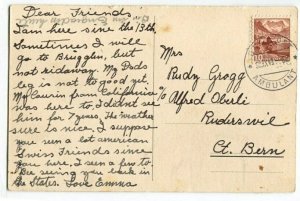 Dear Friends!
I am here since the 13th
Sometimes I will
go to Brugglen, but
not ridaway. My Dads
leg is not to good yet.
My Cousin from California
was here to, I didnt see
him for 7 years. The weather
sure is nice, I suppose
you seen a lot american
Swiss Friends since
you here, I seen a few to.
Bee seeing you back in
the States. Love Emma
Mrs
Rudy Grogg
c/o Alfred Oberli
Ruderswil
Ct. Bern
AMBULANT